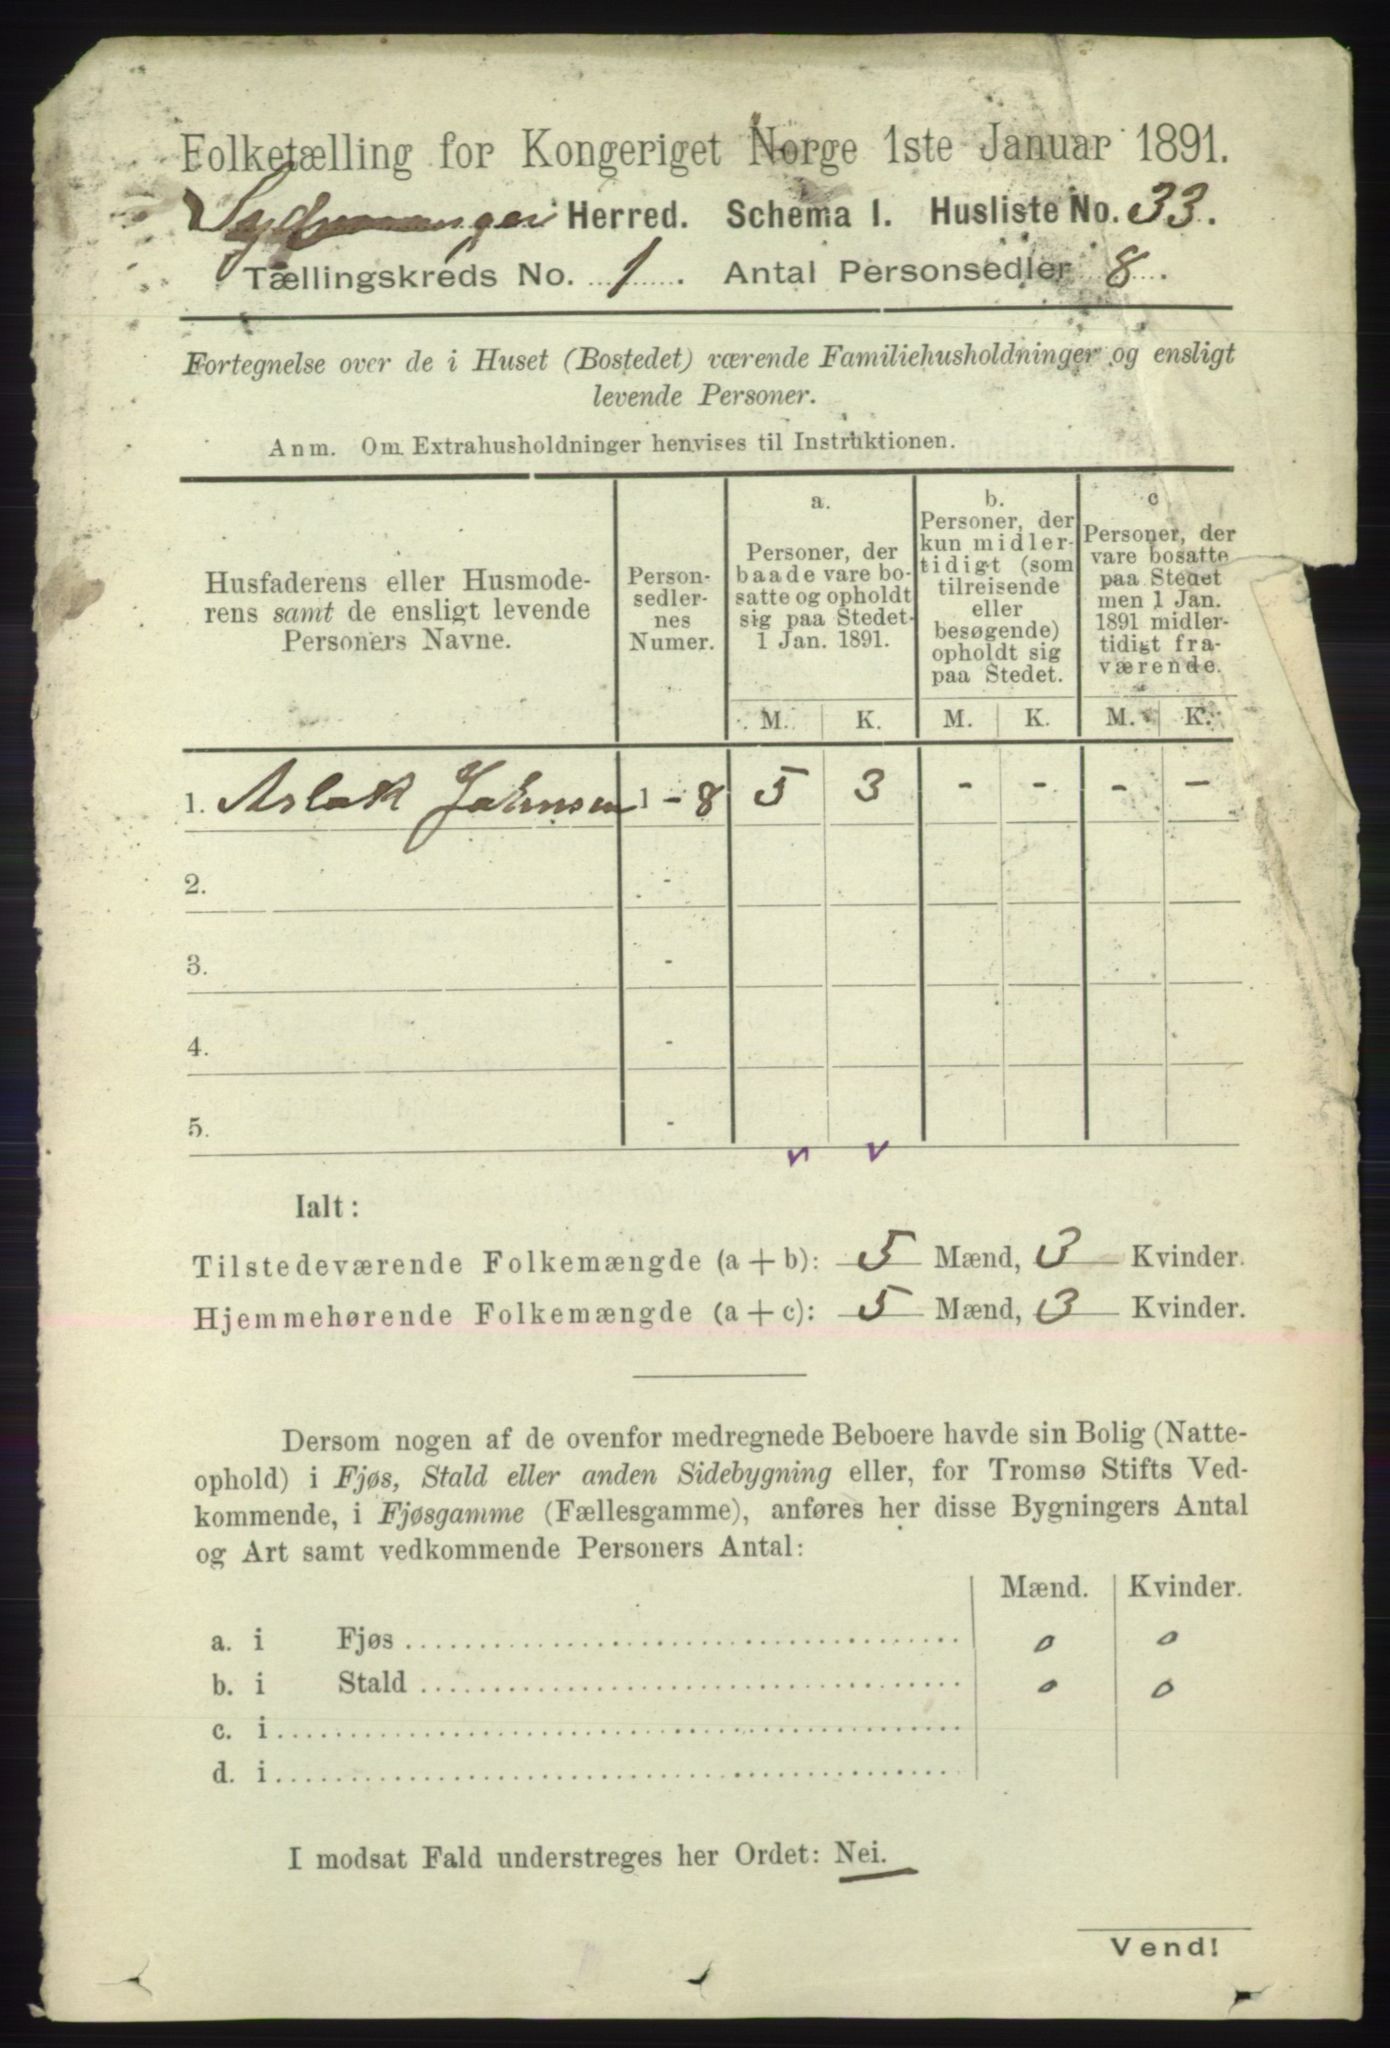 Folketælling for Kongeriget Norge 1ste Januar 1891.
Sydvaranger Herred. Schema I. Husliste No. 33.
Tællingskreds No. 1. Antal Personsedler 8.
Fortegnelse over de i Huset (Bostedet) værende Familiehusholdninger og ensligt
levende Personer.
Anm. Om Extrahusholdninger henvises til Instruktionen.
Husfaderens eller Husmode-
rens samt de ensligt levende
Personers Navne.
Person-
sedler-
nes
Numer.
a.
Personer, der
baade vare bo-
satte og opholdt
sig paa Stedet
1 Jan. 1891.
b.
Personer, der
kun midler-
tidigt (som
tilreisende
eller
besøgende)
opholdt sig
paa Stedet.
c
Personer, der
vare bosatte
paa Stedet
men 1 Jan.
1891 midler-
tidigt fra-
værende.
M. K. M. K. M. K.
1. Aslak Johnsen 1 - 8 5 3 - - - -
2. -
3. -
4. -
5. -
Ialt:
Tilstedeværende Folkemængde (a + b): 5 Mænd, 3 Kvinder.
Hjemmehørende Folkemængde (a + c): 5 Mænd, 3 Kvinder.
Dersom nogen af de ovenfor medregnede Beboere havde sin Bolig (Natte-
ophold) i Fjøs, Stald eller anden Sidebygning eller, for Tromsø Stifts Ved-
kommende, i Fjøsgamme (Fællesgamme), anføres her disse Bygningers Antal
og Art samt vedkommende Personers Antal:
Mænd. Kvinder.
a. i Fjøs 0 0
b. i Stald 0 0
c. i
d. i
I modsat Fald understreges her Ordet: Nei.
Vend!